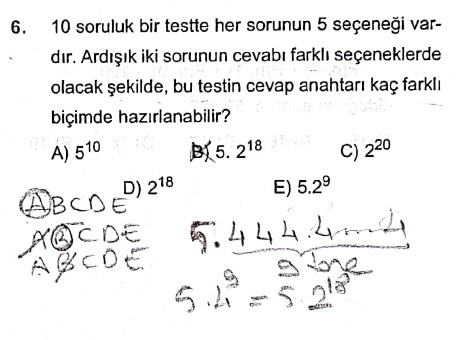 6. 10 soruluk bir testte her sorunun 5 seçeneği var-
dır. Ardışık iki sorunun cevabı farklı seçeneklerde
olacak şekilde, bu testin cevap anahtarı kaç farklı
biçimde hazırlanabilir?
A) 5¹⁰ B) 5. 2¹⁸ C) 2²⁰
D) 2¹⁸ E) 5.2⁹
ABCDE
ABCDE
ABCDE
5.444.4....4
9 tane
5.4⁹ = 5.2¹⁸